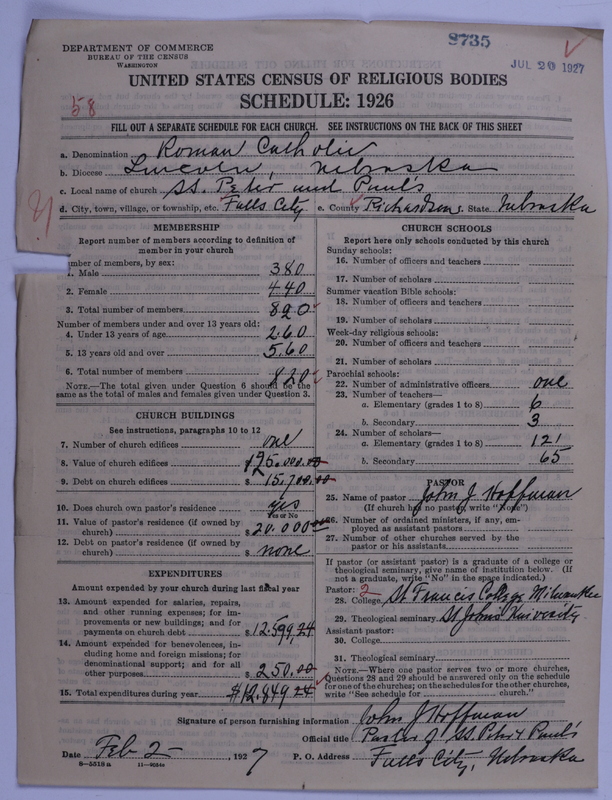 8735
DEPARTMENT OF COMMERCE
BUREAU OF THE CENSUS
WASHINGTON
JUL 20 1927
UNITED STATES CENSUS OF RELIGIOUS BODIES
SCHEDULE: 1926
58
FILL OUT A SEPARATE SCHEDULE FOR EACH CHURCH. SEE INSTRUCTIONS ON THE BACK OF THIS SHEET
a. Denomination Roman Catholic
b. Diocese Lincoln, Nebraska
c. Local name of church SS. Peter and Paul's
d. City, town, village, or township, etc. Falls City e. County Richardson f. State Nebraska
MEMBERSHIP
Report number of members according to definition of
member in your church
mber of members, by sex:
1. Male 380
2. Female 440
3. Total number of members 820
Number of members under and over 13 years old:
4. Under 13 years of age 260
5. 13 years old and over 560
6. Total number of members 820
NOTE.—The total given under Question 6 should be the
same as the total of males and females given under Question 3.
CHURCH BUILDINGS
See instructions, paragraphs 10 to 12
7. Number of church edifices one
8. Value of church edifices $ 125.000.00
9. Debt on church edifices $ 15.700.00
10. Does church own pastor's residence? yes
Yes or No
11. Value of pastor's residence (if owned by
church) $ 20.000.00
12. Debt on pastor's residence (if owned by
church) $ none
EXPENDITURES
Amount expended by your church during last fiscal year
13. Amount expended for salaries, repairs,
and other running expenses; for im-
provements or new buildings; and for
payments on church debt $ 12,599,24
14. Amount expended for benevolences, in-
cluding home and foreign missions; for
denominational support; and for all
other purposes $ 250.00
15. Total expenditures during year $12,849 24
CHURCH SCHOOLS
Report here only schools conducted by this church
Sunday schools:
16. Number of officers and teachers
17. Number of scholars
Summer vacation Bible schools:
18. Number of officers and teachers
19. Number of scholars
Week-day religious schools:
20. Number of officers and teachers
21. Number of scholars
Parochial schools:
22. Number of administrative officers one
23. Number of teachers—
a. Elementary (grades 1 to 8) 6
b. Secondary 3
24. Number of scholars—
a. Elementary (grades 1 to 8) 121
b. Secondary 65
PASTOR
25. Name of pastor John J. Hoffman
(If church has no pastor, write "None")
26. Number of ordained ministers, if any, em-
ployed as assistant pastors
27. Number of other churches served by the
pastor or his assistants
If pastor (or assistant pastor) is a graduate of a college or
theological seminary, give name of institution below. (If
not a graduate, write "No" in the space indicated.)
Pastor: 2
28. College St Francis College Milwaukee
29. Theological seminary St Johns University
Assistant pastor:
30. College
31. Theological seminary
NOTE.—Where one pastor serves two or more churches,
Questions 28 and 29 should be answered only on the schedule
for one of the churches; on the schedules for the other churches,
write "See schedule for church."
Signature of person furnishing information John J Hoffman
Official title Pastor of SS. Peter & Paul's
Date Feb 2- , 1927 P. O. Address Falls City, Nebraska
8—5518a 11—9034a